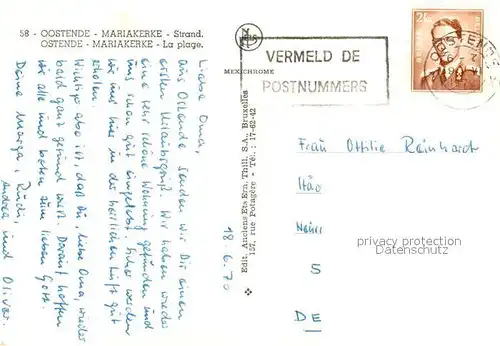 58 - OOSTENDE - MARIAKERKE - Strand.
OSTENDE - MARIAKERKE - La plage.
Liebe Oma,
aus Ostende senden wir Dir einen
ersten Urlaubsgruß. Wir haben wieder
eine sehr schöne Wohnung gefunden und
uns schon gut eingelebt. Sicher werden
wir uns hier in der herrlichen Luft gut
erholen.
Wichtig aber ist, daß Du, liebe Oma, wieder
bald ganz gesund wirst. Darauf hoffen
wir alle und beten zum lieben Gott.
Deine Marga, Rudi,
Andrea und Oliver.
18.6.70
MEXICHROME
Edit. Anciens Ets Ern. Thill, S.A., Bruxelles
157, rue Potagère - Tél.: 17-62-42
VERMELD DE
POSTNUMMERS
2F
OOSTENDE
Frau Ottilie Reinhardt
privacy protection
Datenschutz
S
DE